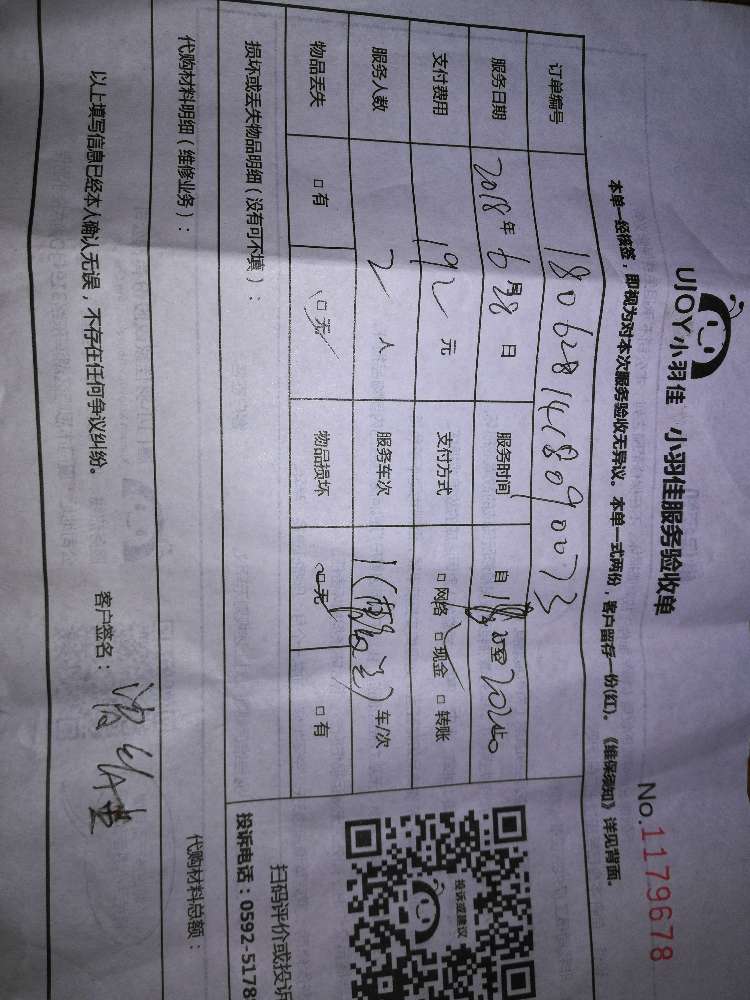 UJOY小羽佳 小羽佳服务验收单
No.1179678
本单一经核签，即视为对本次服务验收无异议。本单一式两份，客户留存一份(红)。《维保须知》详见背面。
订单编号 1806281418090073
服务日期 2018年6月28日 服务时间 自 至
支付费用 192元 支付方式 □网络 □现金 □转账
服务人数 2人 服务车次 1 车/次
物品丢失 □有 □无 物品损坏 □无 □有
损坏或丢失物品明细（没有可不填）：
投诉或建议
扫码评价或投诉
投诉电话：0592-5178
代购材料明细（维修业务）： 代购材料总额：
以上填写信息已经本人确认无误，不存在任何争议纠纷。 客户签名：